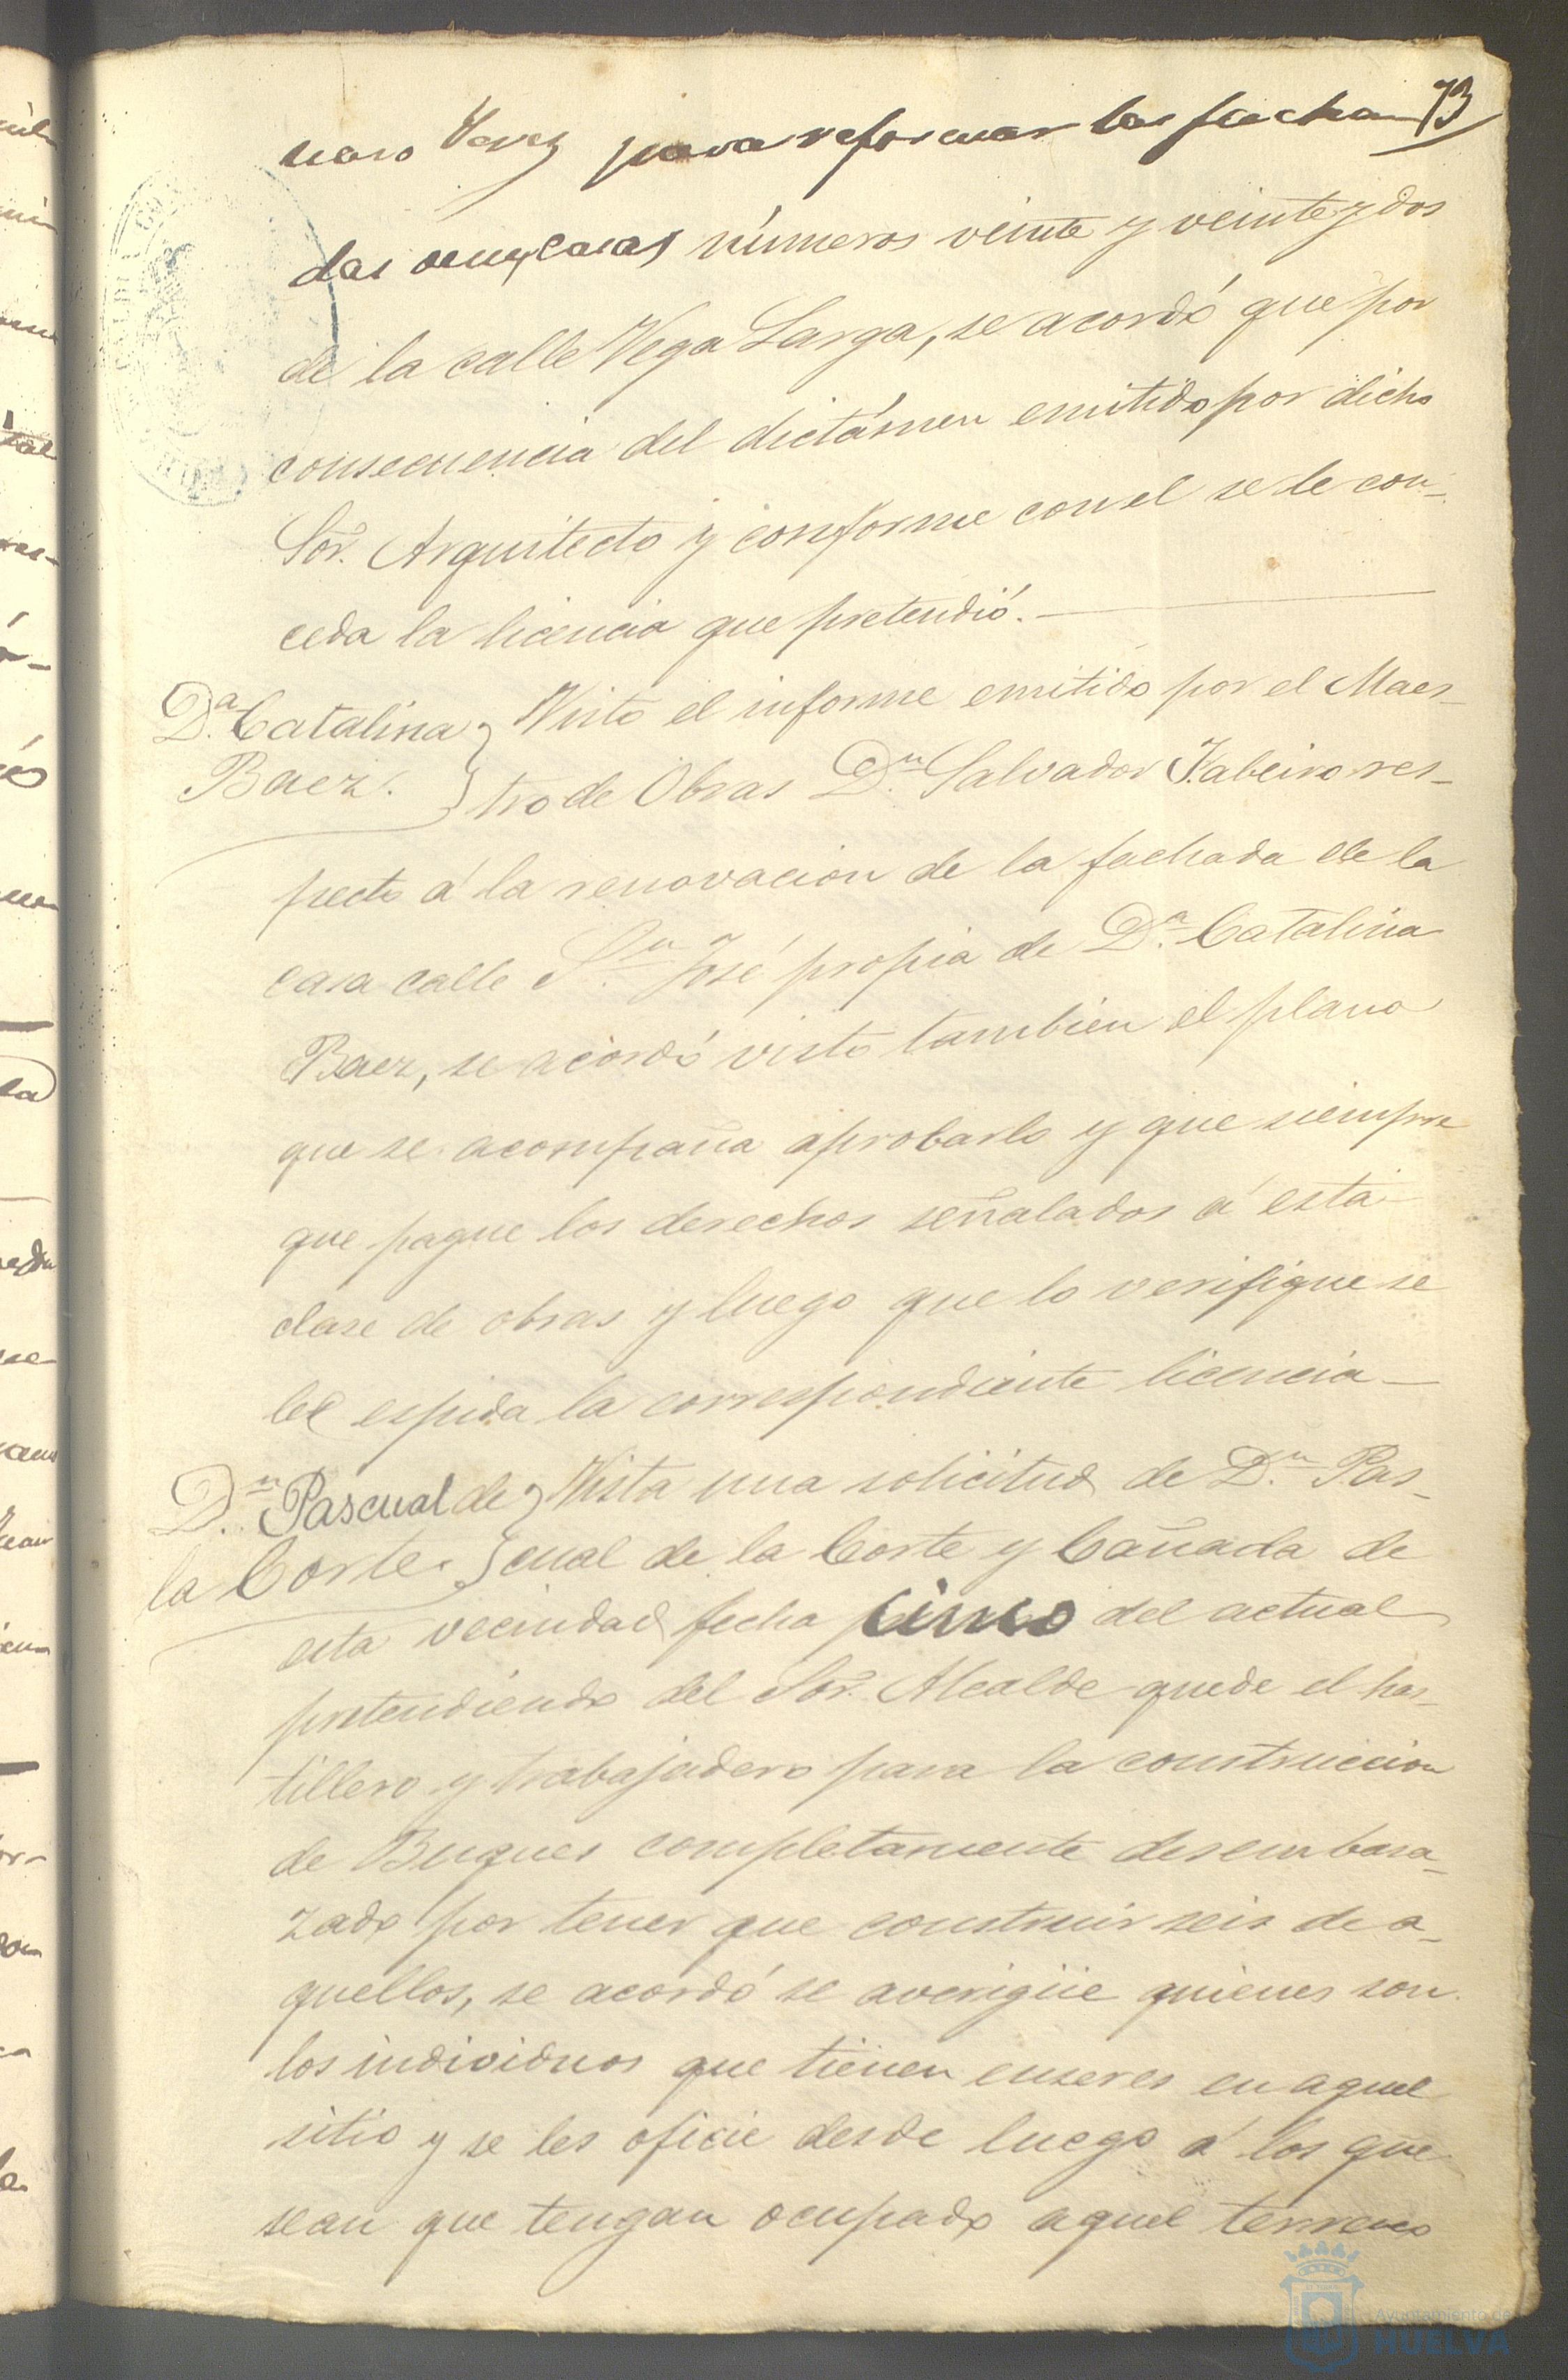 73
para reformar las facha
das casas números veinte y veinte y dos
de la calle Vega Larga, se acordó que por
consecuencia del dictámen emitido por dicho
Sor. Arquitecto y conforme con el se le con-
ceda la licencia que pretendió.
Da. Catalina
Baez.
Visto el informe emitido por el Maes-
tro de Obras Dn. Salvador res-
pecto á la renovacion de la fachada de la
casa calle Sn. José propia de Da. Catalina
Baez, se acordó visto tambien el plano
que se acompaña aprobarlo y que siempre
que pague los derechos señalados á esta
clase de obras y luego que lo verifique se
le espida la correspondiente licencia
Dn. Pascual de
la Corte.
Vista una solicitud de Dn. Pas-
cual de la Corte y Cañada de
esta vecindad fecha cinco del actual
pretendiendo del Sor. Alcalde quede el has-
tillero y trabajadero para la construccion
de Buques completamente desembara-
zado por tener que construir seis de a-
quellos, se acordó se averigüe quienes son
los individuos que tienen enseres en aquel
sitio y se les oficie desde luego á los que
sean que tengan ocupado aquel terreno
Ayuntamiento de
HUELVA